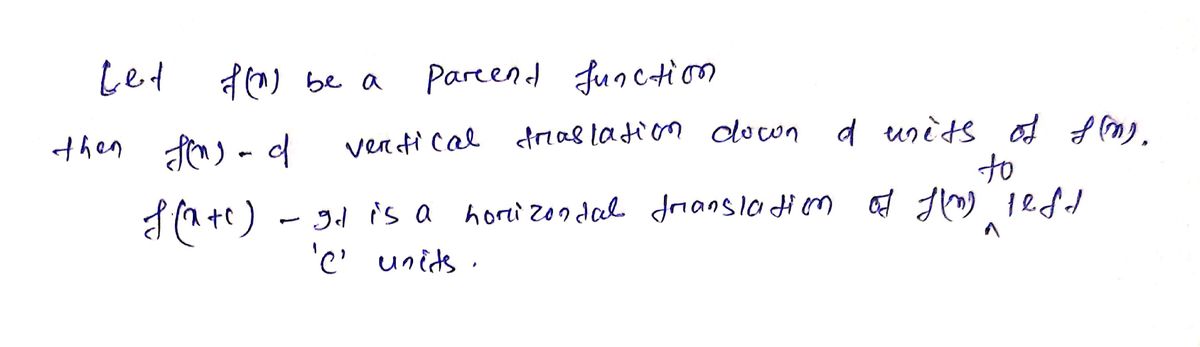 Let f(x) be a Parent function
then f(x) - d vertical traslation down d units of f(x).
f(x+c) - It is a horizontal translation of f(x) to left
'c' units.